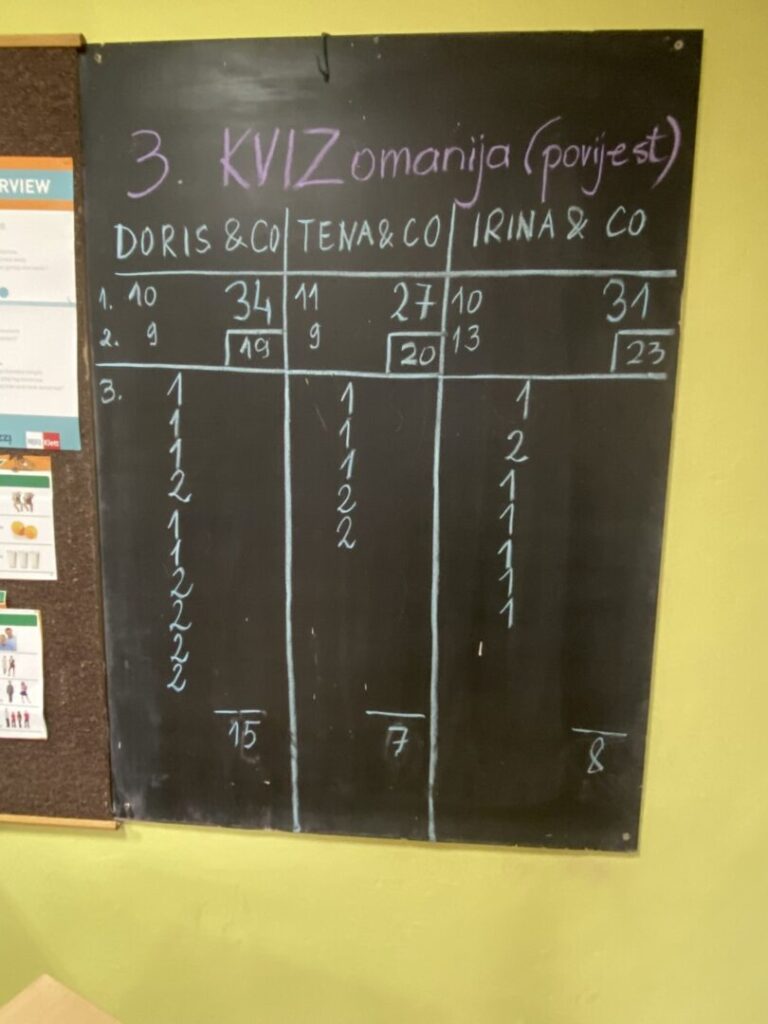 3. KVIZomanija (povijest)
DORIS & CO TENA & CO IRINA & CO
1. 10 34 11 27 10 31
2. 9 19 9 20 13 23
3. 1 1 1
1 1 2
1 1 1
2 2 1
1 2 1
1 1
2 1
2
2
2
15 7 8
RVIEW
Klett